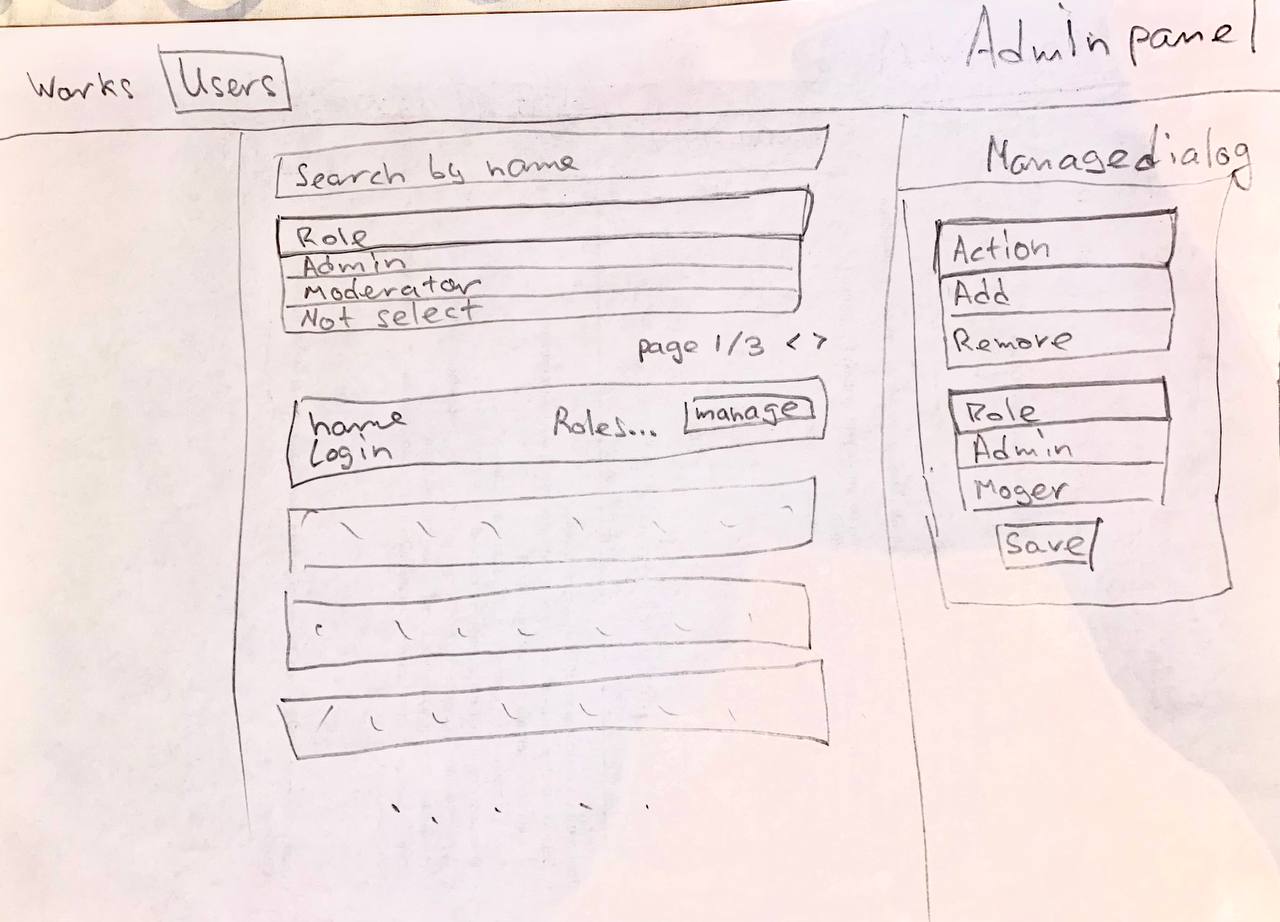 Works Users Admin panel
Search by name
Role
Admin
Moderator
Not select
page 1/3 < >
name
Login
Roles...
manage
Manage dialog
Action
Add
Remove
Role
Admin
Moger
Save